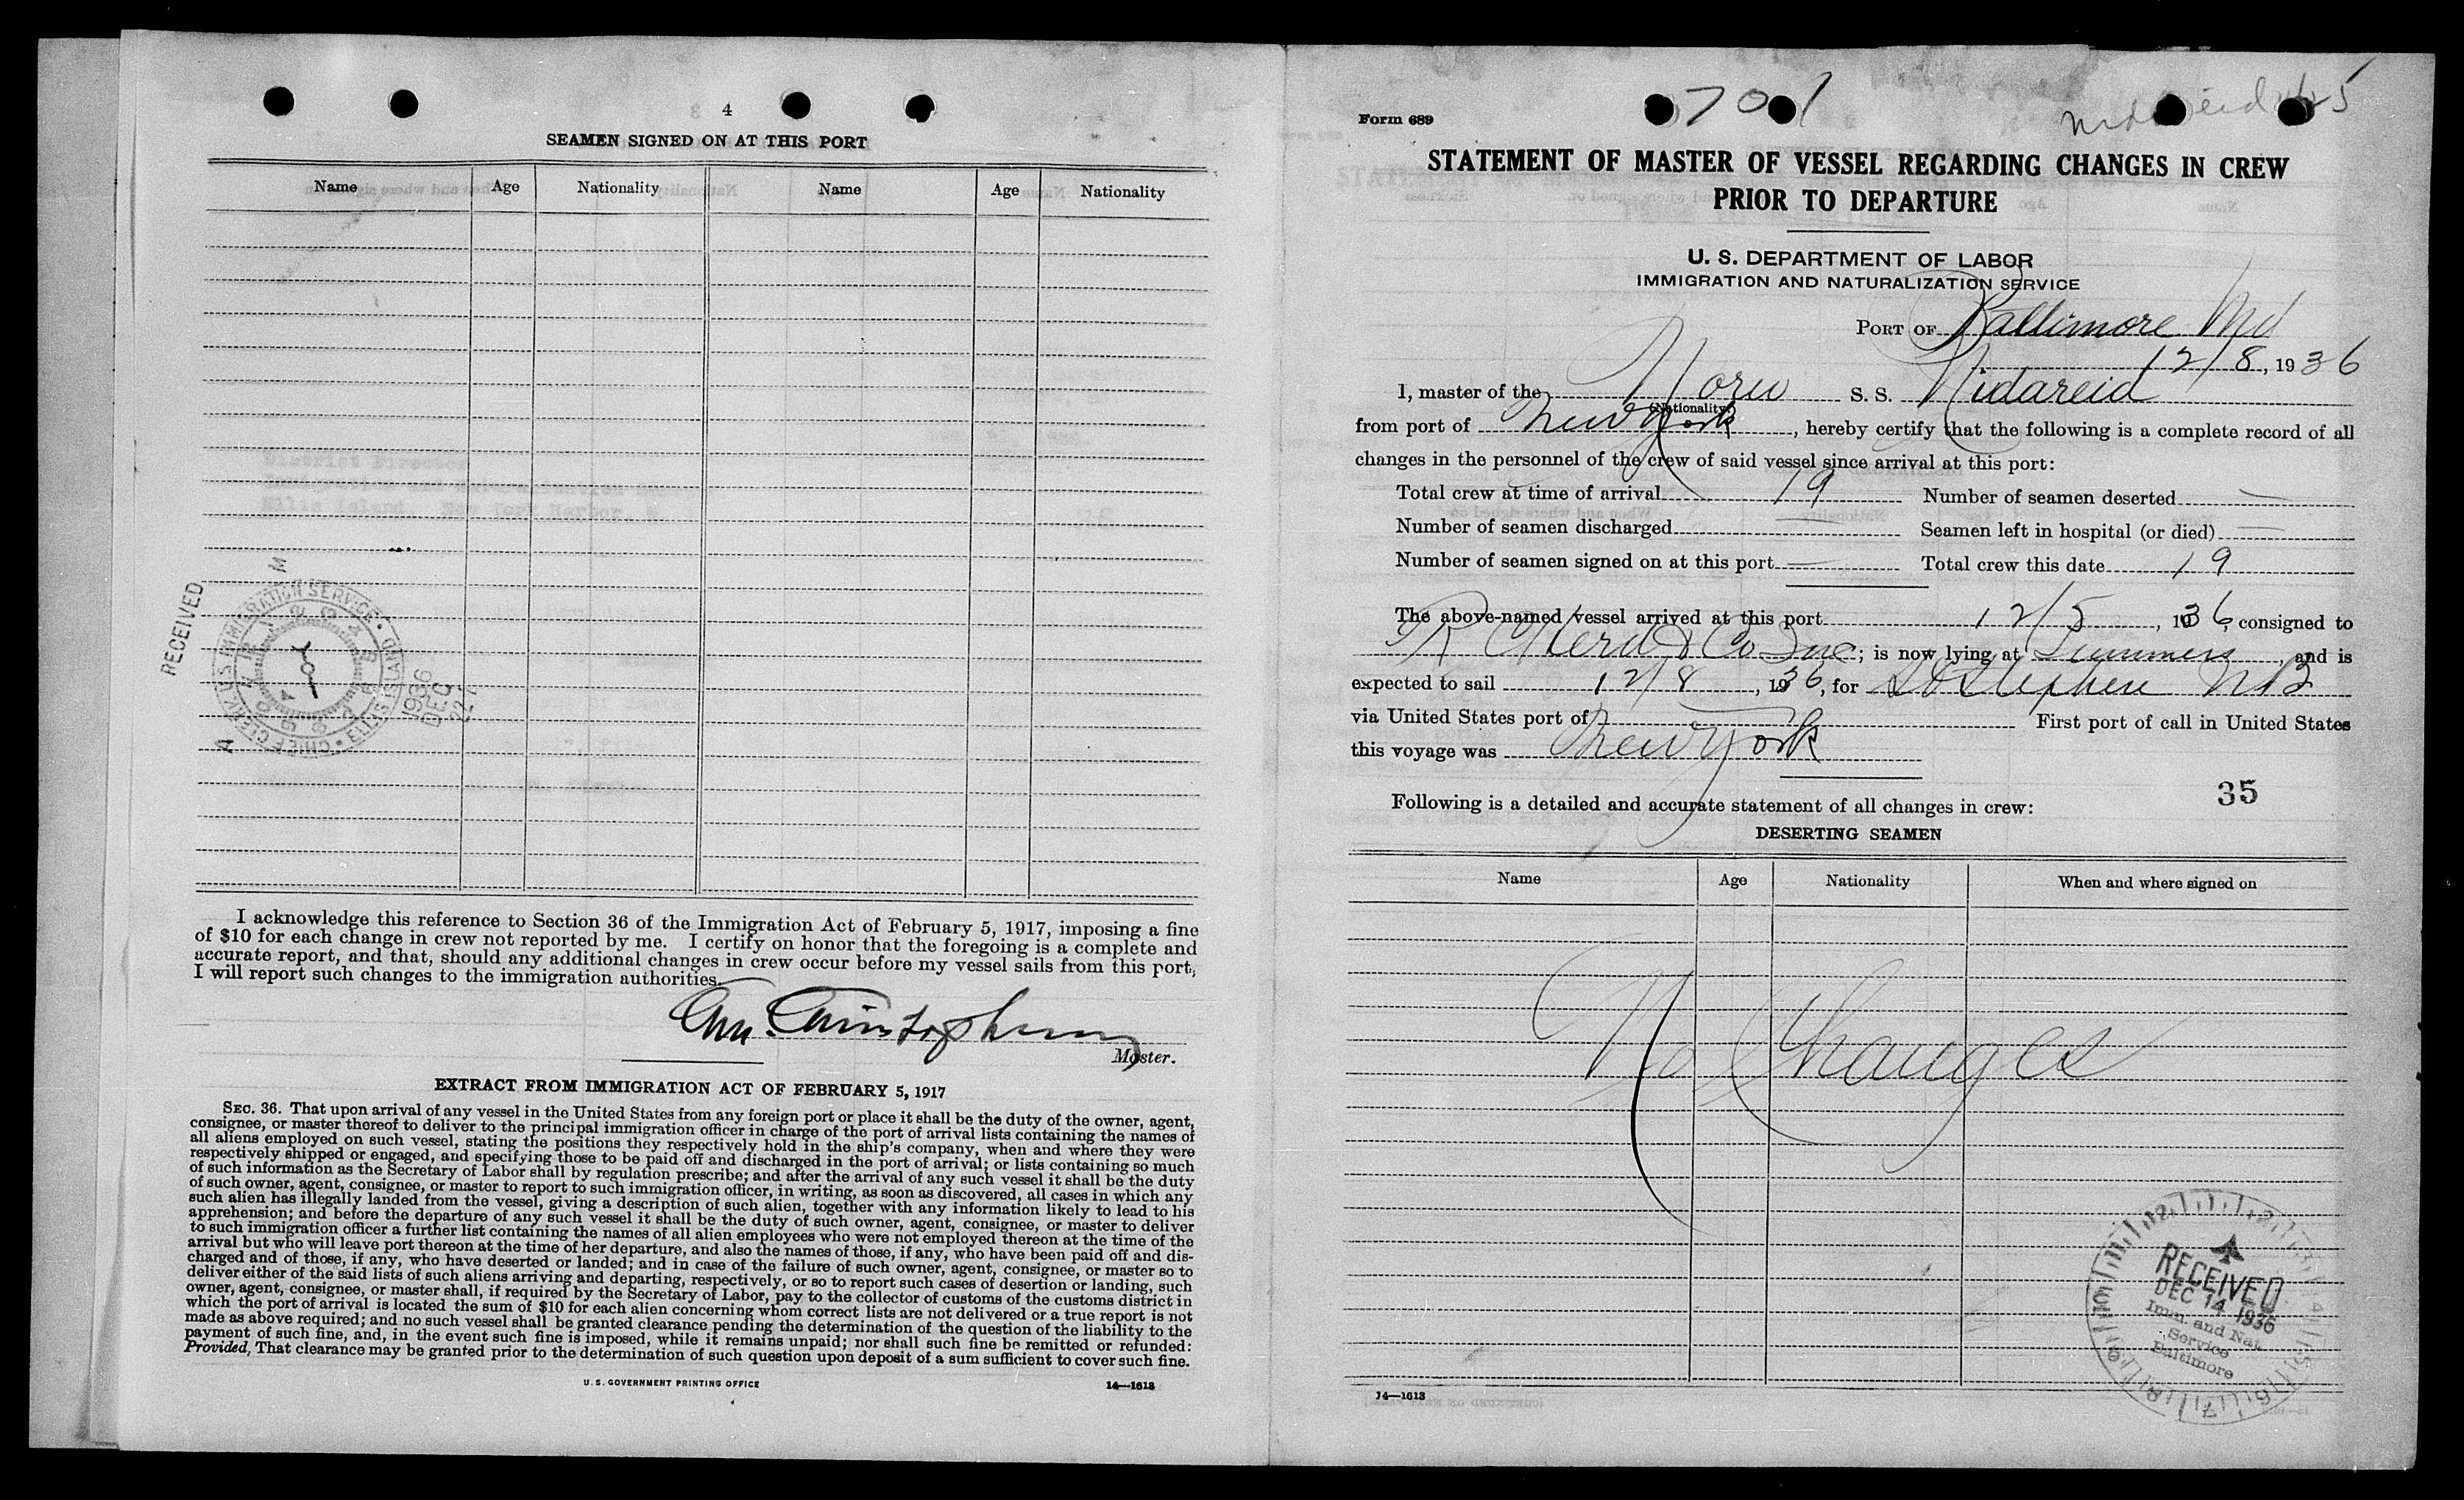 4
SEAMEN SIGNED ON AT THIS PORT
Name Age Nationality Name Age Nationality
RECEIVED
U.S. IMMIGRATION SERVICE • CHIEF CLERK • ELLIS ISLAND •
1936
DEC
22
A M
I acknowledge this reference to Section 36 of the Immigration Act of February 5, 1917, imposing a fine
of $10 for each change in crew not reported by me. I certify on honor that the foregoing is a complete and
accurate report, and that, should any additional changes in crew occur before my vessel sails from this port,
I will report such changes to the immigration authorities.
Master.
EXTRACT FROM IMMIGRATION ACT OF FEBRUARY 5, 1917
SEC. 36. That upon arrival of any vessel in the United States from any foreign port or place it shall be the duty of the owner, agent,
consignee, or master thereof to deliver to the principal immigration officer in charge of the port of arrival lists containing the names of
all aliens employed on such vessel, stating the positions they respectively hold in the ship's company, when and where they were
respectively shipped or engaged, and specifying those to be paid off and discharged in the port of arrival; or lists containing so much
of such information as the Secretary of Labor shall by regulation prescribe; and after the arrival of any such vessel it shall be the duty
of such owner, agent, consignee, or master to report to such immigration officer, in writing, as soon as discovered, all cases in which any
such alien has illegally landed from the vessel, giving a description of such alien, together with any information likely to lead to his
apprehension; and before the departure of any such vessel it shall be the duty of such owner, agent, consignee, or master to deliver
to such immigration officer a further list containing the names of all alien employees who were not employed thereon at the time of the
arrival but who will leave port thereon at the time of her departure, and also the names of those, if any, who have been paid off and dis-
charged and of those, if any, who have deserted or landed; and in case of the failure of such owner, agent, consignee, or master so to
deliver either of the said lists of such aliens arriving and departing, respectively, or so to report such cases of desertion or landing, such
owner, agent, consignee, or master shall, if required by the Secretary of Labor, pay to the collector of customs of the customs district in
which the port of arrival is located the sum of $10 for each alien concerning whom correct lists are not delivered or a true report is not
made as above required; and no such vessel shall be granted clearance pending the determination of the question of the liability to the
payment of such fine, and, in the event such fine is imposed, while it remains unpaid; nor shall such fine be remitted or refunded:
Provided, That clearance may be granted prior to the determination of such question upon deposit of a sum sufficient to cover such fine.
U. S. GOVERNMENT PRINTING OFFICE 14—1613
Form 689 701
STATEMENT OF MASTER OF VESSEL REGARDING CHANGES IN CREW
PRIOR TO DEPARTURE
U. S. DEPARTMENT OF LABOR
IMMIGRATION AND NATURALIZATION SERVICE
PORT OF Baltimore Md
12/8, 1936
I, master of the Norw S. S. Nidareid
(Nationality)
from port of New York, hereby certify that the following is a complete record of all
changes in the personnel of the crew of said vessel since arrival at this port:
Total crew at time of arrival 19 Number of seamen deserted —
Number of seamen discharged — Seamen left in hospital (or died) —
Number of seamen signed on at this port — Total crew this date 19
The above-named vessel arrived at this port 12/5, 1936, consigned to
R C Herd & Co Inc; is now lying at Summers, and is
expected to sail 12/8, 1936, for St Stephen NB
via United States port of First port of call in United States
this voyage was New York
35
Following is a detailed and accurate statement of all changes in crew:
DESERTING SEAMEN
Name Age Nationality When and where signed on
No Changes
RECEIVED
DEC 14 1936
Imm. and Nat.
Service
Baltimore
14—1613